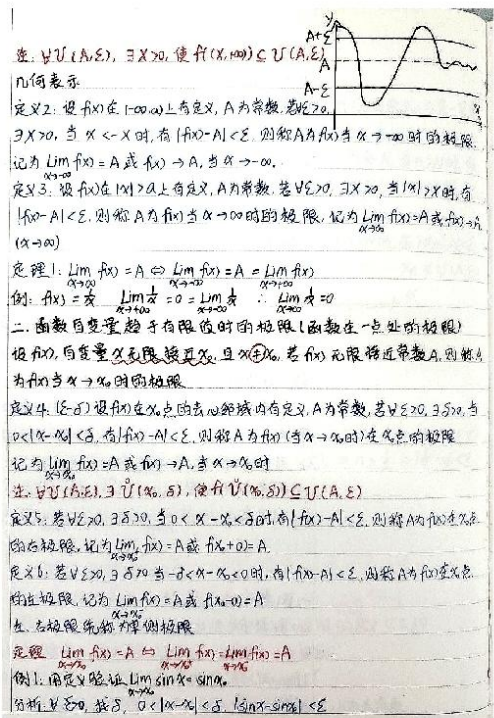 y
A+ε
A
A-ε
x
注: ∀U(A,ε), ∃X>0, 使f((X,+∞))⊆U(A,ε)
几何表示
定义2: 设f(x)在(-∞,a)上有定义, A为常数, 若∀ε>0,
∃X>0, 当x<-X时, 有|f(x)-A|<ε, 则称A为f(x)当x→-∞时的极限.
记为 Lim x→-∞ f(x)=A 或 f(x)→A, 当x→-∞.
定义3: 设f(x)在|x|>a上有定义, A为常数, 若∀ε>0, ∃X>0, 当|x|>X时, 有
|f(x)-A|<ε, 则称A为f(x)当x→∞时的极限, 记为 Lim x→∞ f(x)=A 或 f(x)→A
(x→∞)
定理1: Lim x→∞ f(x)=A ⇔ Lim x→-∞ f(x)=A=Lim x→+∞ f(x)
例: f(x)=1/x Lim x→+∞ 1/x=0=Lim x→-∞ 1/x ∴ Lim x→∞ 1/x=0
二. 函数自变量趋于有限值时的极限(函数在一点处的极限)
设f(x), 自变量x无限接近x₀, 且x≠x₀, 若f(x)无限接近常数A, 则称A
为f(x)当x→x₀时的极限
定义4: (ε-δ)设f(x)在x₀点的去心邻域内有定义, A为常数, 若∀ε>0, ∃δ>0, 当
0<|x-x₀|<δ, 有|f(x)-A|<ε, 则称A为f(x)(当x→x₀时)在x₀点的极限
记为 Lim x→x₀ f(x)=A 或 f(x)→A, 当x→x₀时
注: ∀U(A,ε), ∃Ů(x₀,δ), 使f(Ů(x₀,δ))⊆U(A,ε)
定义5: 若∀ε>0, ∃δ>0, 当0<x-x₀<δ时, 有|f(x)-A|<ε, 则称A为f(x)在x₀点
的右极限, 记为 Lim x→x₀⁺ f(x)=A 或 f(x₀+0)=A
定义6: 若∀ε>0, ∃δ>0 当-δ<x-x₀<0时, 有|f(x)-A|<ε, 则称A为f(x)在x₀点
的左极限, 记为 Lim x→x₀⁻ f(x)=A 或 f(x₀-0)=A
左. 右极限统称为单侧极限
定理 Lim x→x₀ f(x)=A ⇔ Lim x→x₀⁺ f(x)=Lim x→x₀⁻ f(x)=A
例1: 用定义验证 Lim x→x₀ sinx=sinx₀
分析: ∀ε>0, 找δ, 0<|x-x₀|<δ, |sinx-sinx₀|<ε